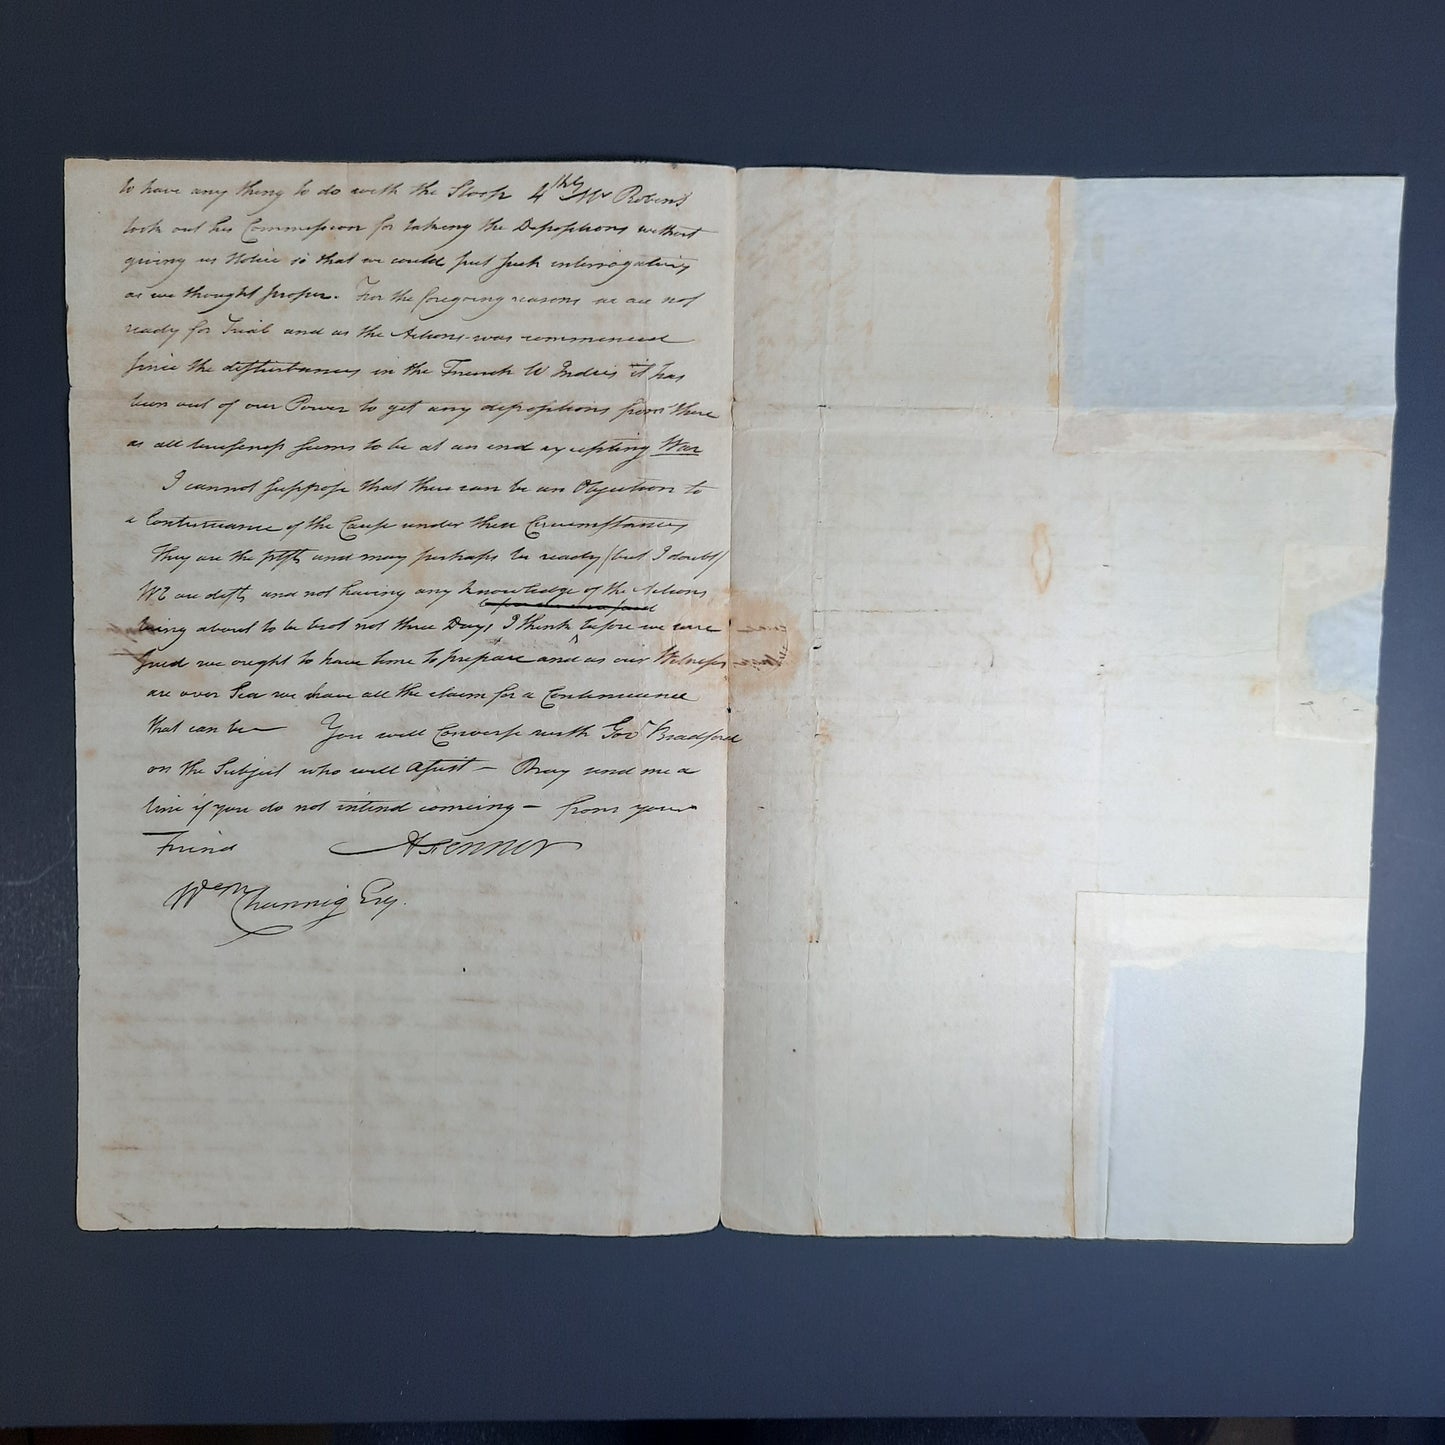 to have any thing to do with the Sloop 4thly Mr Robins
took out his Commission for taking the Depositions without
giving us Notice so that we could put such interrogatives
as we thought proper. For the foregoing reasons we are not
ready for Trial and as the Actions was commenced
since the disturbances in the French W Indies it has
been out of our Power to get any depositions from there
as all business seems to be at an end excepting War
I cannot suppose that there can be an Objection to
a Continuance of the Cause under these Circumstances
They are the pltfs and may perhaps be ready (but I doubt)
We are defts and not having any knowledge of the Actions
being about to be brot not three Days I think before we were
sued we ought to have time to prepare and as our Witnesses
are over Sea we have all the claim for a Continuence
that can be — You will Converse with Govr Bradford
on the Subject who will assist — Pray send me a
line if you do not intend comeing — from your
Friend A Fenner
Wm Channig Esq.